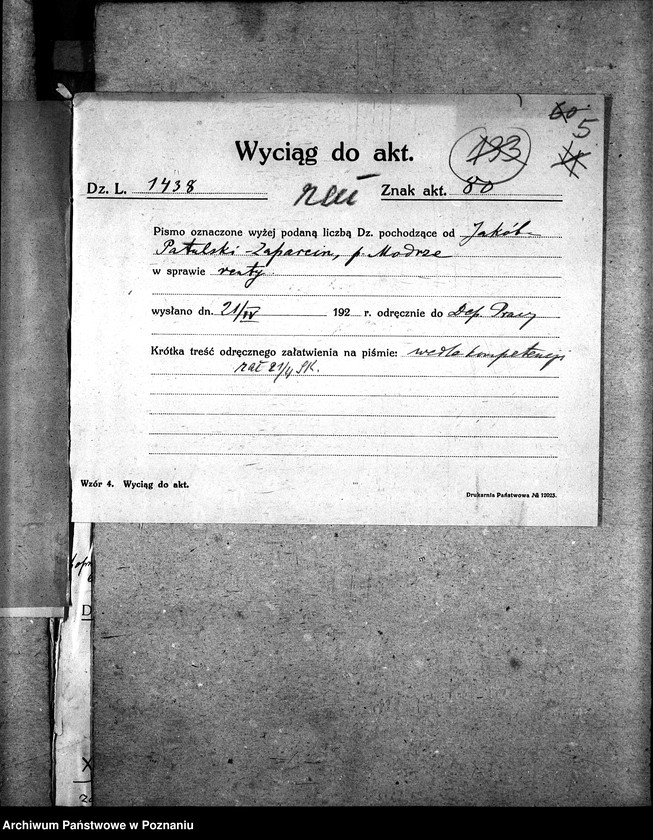 60
5
Wyciąg do akt.
193
Dz. L. 1438
Znak akt. 80
Pismo oznaczone wyżej podaną liczbą Dz. pochodzące od Jakób
Patalski Zaparcin, p. Modrze
w sprawie renty
wysłano dn. 21/IV 192 r. odręcznie do Dep. Pracy
Krótka treść odręcznego załatwienia na piśmie: wedle kompetencji
zał 21/4 SK.
Wzór 4. Wyciąg do akt.
Drukarnia Państwowa № 12023.
D
X
Archiwum Państwowe w Poznaniu